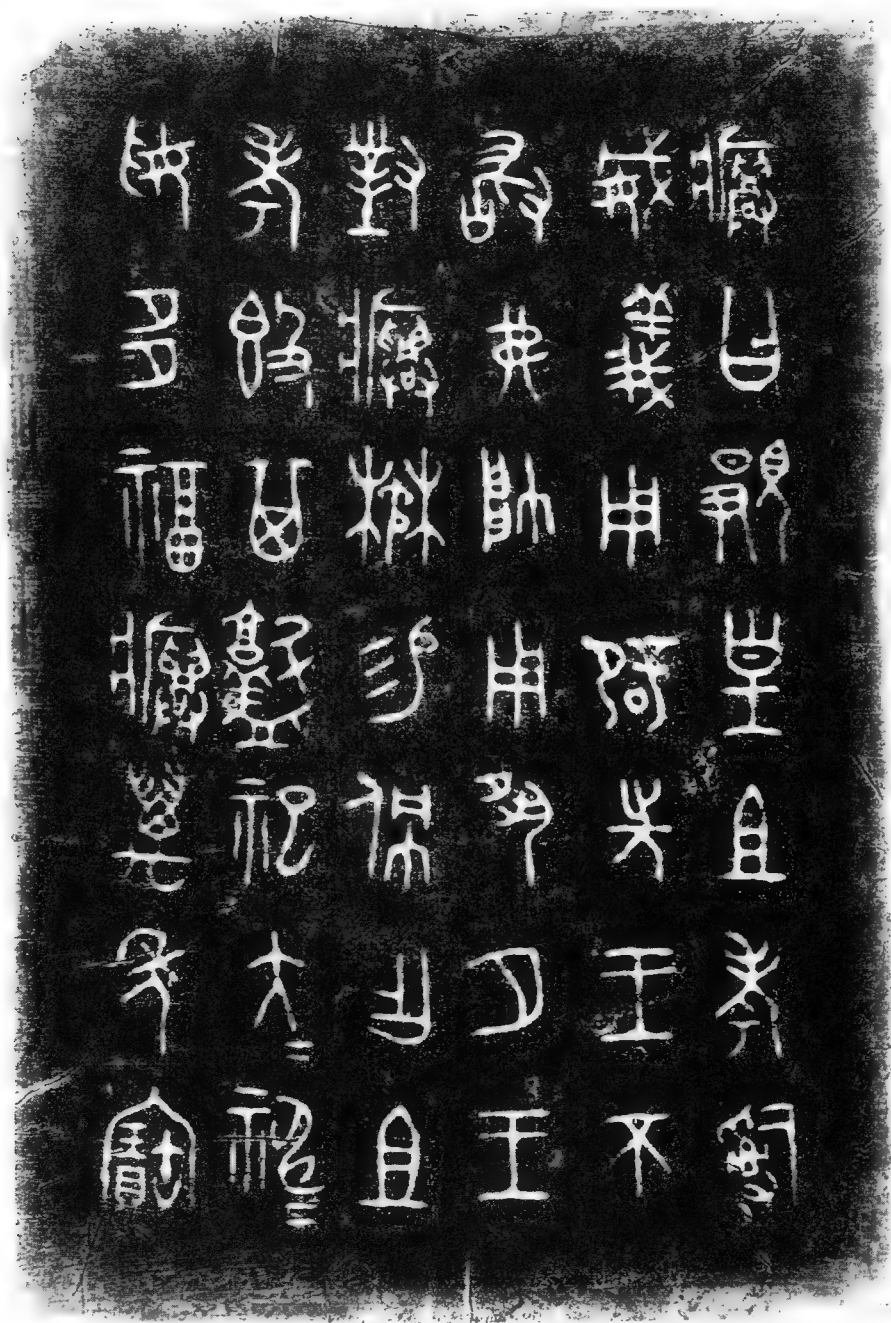 𤼈曰覭皇且考𤔲
威義用辟先王不
敢弗帥用夙夕王
對𤼈楙易佩乍且
考𣪘其盩祀大=神=
妥多福𤼈萬年寶